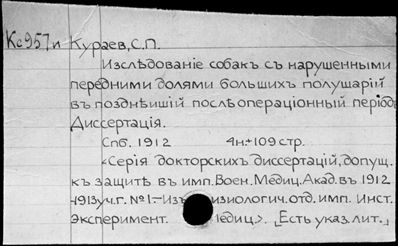 Кс957и Кураев, С.П.
Изслѣдованіе собакъ съ нарушенными
передними долями большихъ полушарій
въ позднѣишій послѣоперационный періодъ
Диссертація.
Спб. 1912 4н.+109 стр.
«Серія докторскихъ диссертацій, допущ.
къ защитѣ въ имп. Воен. Медиц. Акад. въ 1912
-1913 уч. г. №1.-Изъ физиологич. отд. имп. Инст.
эксперимент. Медиц.». [Есть указ. лит.]